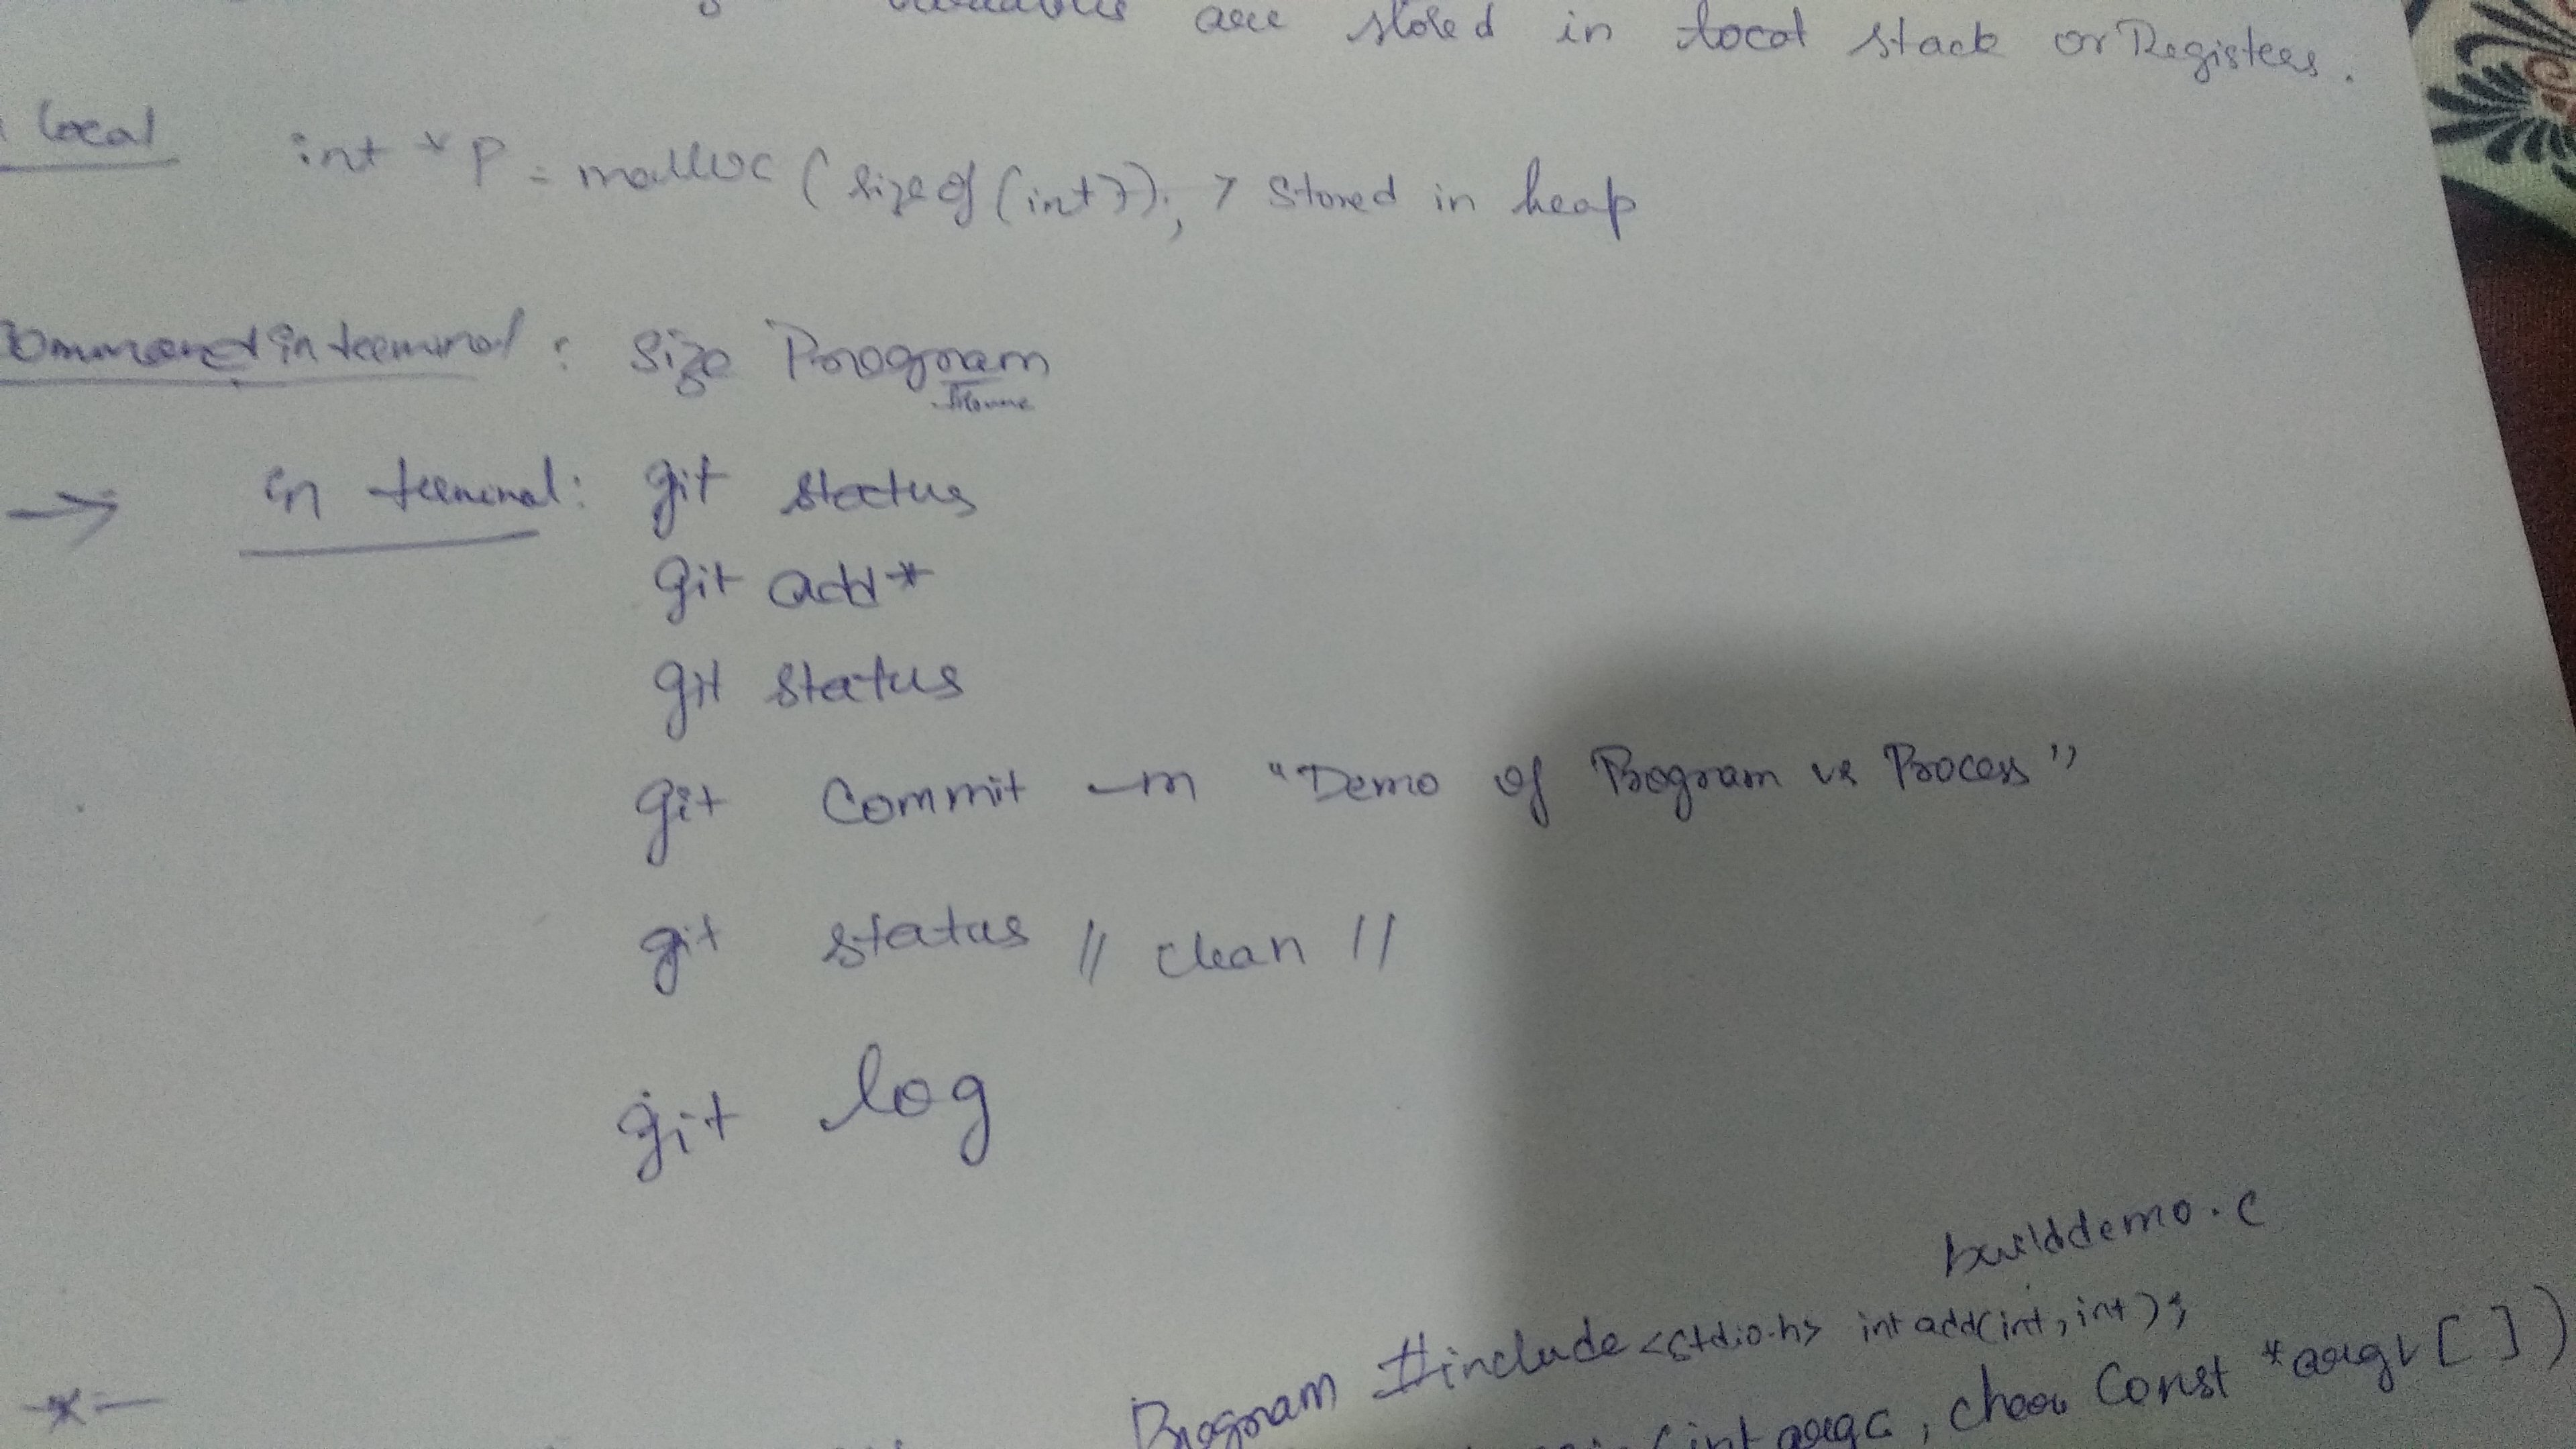 are stored in local stack or Registers.
local int *P = malloc(sizeof(int)); > stored in heap
command in terminal : Size Program
Name
→ in terminal: git status
git add*
git status
git commit -m "Demo of Program vs Process"
git status // clean //
git log
builddemo.c
*— Program #include<stdio.h> int add(int, int);
(int argc, char const *argv[])